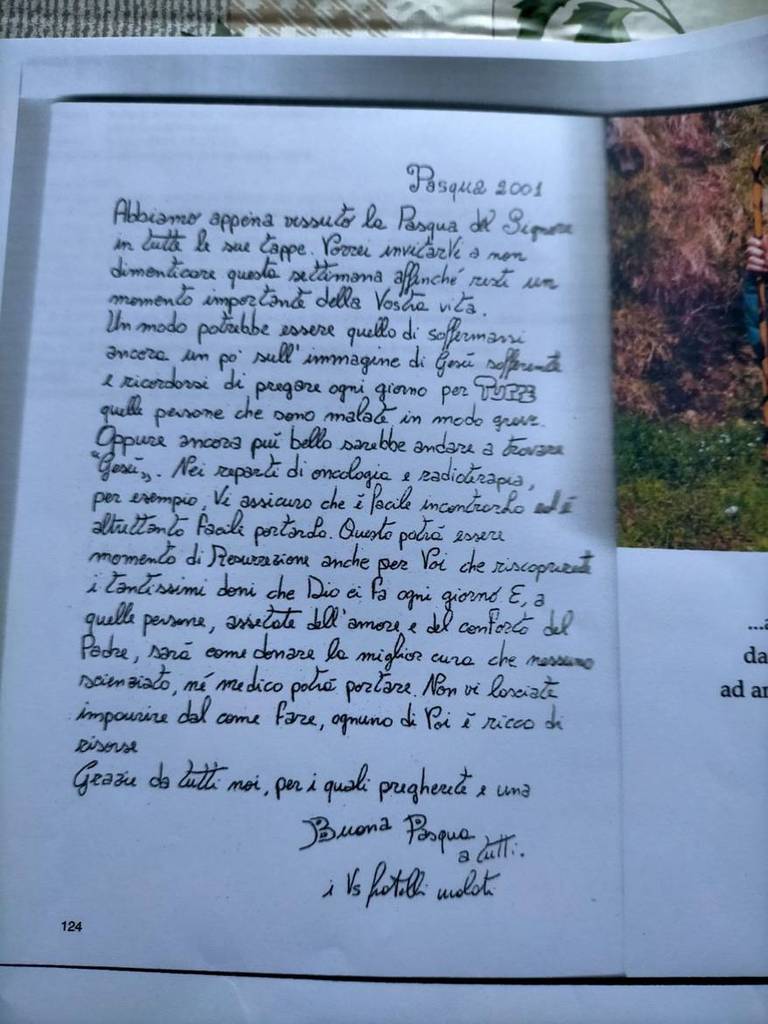 Pasqua 2001
Abbiamo appena vissuto la Pasqua del Signore
in tutte le sue tappe. Vorrei invitarVi a non
dimenticare questa settimana affinché resti un
momento importante della Vostra vita.
Un modo potrebbe essere quello di soffermarsi
ancora un po' sull'immagine di Gesù sofferente
e ricordarsi di pregare ogni giorno per TUTTE
quelle persone che sono malate in modo grave.
Oppure ancora più bello sarebbe andare a trovare
"Gesù". Nei reparti di oncologia e radioterapia,
per esempio, Vi assicuro che è facile incontrarlo ed è
altrettanto facile portarlo. Questo potrà essere
momento di Resurrezione anche per Voi che riscoprirete
i tantissimi doni che Dio ci fa ogni giorno E, a
quelle persone, assetate dell'amore e del conforto del
Padre, sarà come donare la miglior cura che nessuno
scienziato, né medico potrà portare. Non vi lasciate
impaurire dal come fare, ognuno di Voi è ricco di
risorse
Grazie da tutti noi, per i quali pregherete e una
Buona Pasqua
a tutti.
i Vs fratelli malati
124
...a
da
ad a